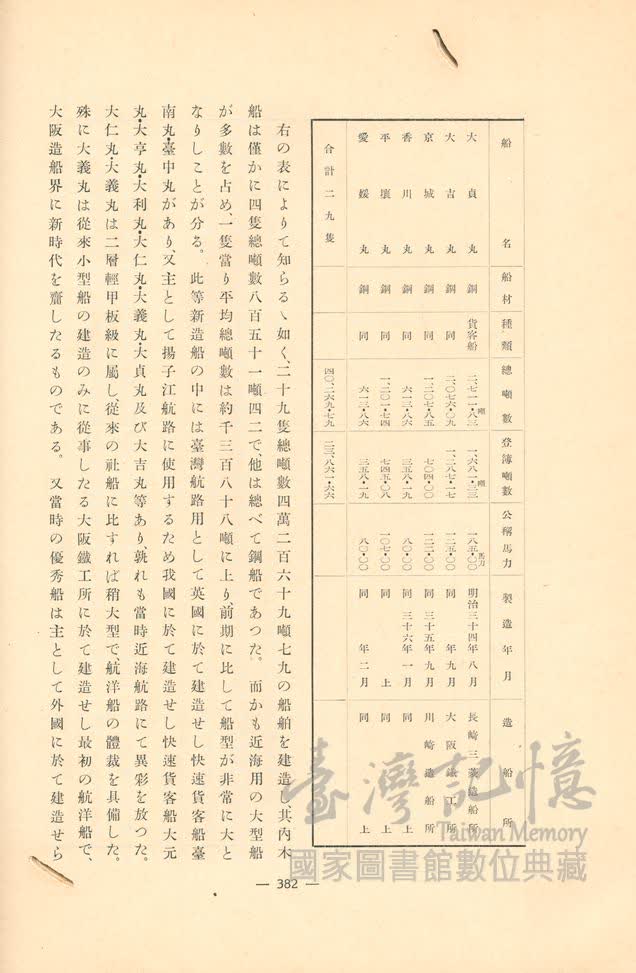 船名 船材 種類 總噸數 登簿噸數 公稱馬力 製造年月 造船所
大貞丸 鋼 貨客船 二、七一一・八三噸 一、六八一・二三噸 一八五・〇〇馬力 明治三十四年八月 長崎三菱造船所
大吉丸 鋼 同 二、〇七六・〇九 一、二八七・一七 一二五・〇〇 同年九月 大阪鐵工所
京城丸 鋼 同 一、二〇七・八五 七〇四・〇〇 一二二・〇〇 同三十五年九月 川崎造船所
香川丸 鋼 同 六一三・八六 三五八・一九 八〇・〇〇 同三十六年一月 同上
平壤丸 鋼 同 一、二〇一・七四 七四五・〇〇 一〇七・〇〇 同上 同上
愛媛丸 鋼 同 六一三・八六 三五八・一九 八〇・〇〇 同年二月 同上
合計二九隻 四〇、二六九・七九 二三、八六一・六六
右の表によりて知らるゝ如く、二十九隻總噸數四萬二百六十九噸七九の船舶を建造し、其內木
船は僅かに四隻總噸數八百五十一噸四二で、他は總べて鋼船であつた。而かも近海用の大型船
が多數を占め、一隻當り平均總噸數は約千三百八十八噸に上り、前期に比して船型が非常に大と
なりしことが分る。此等新造船の中には臺灣航路用として英國に於て建造せし快速貨客船臺
南丸・臺中丸があり、又主として揚子江航路に使用するため我國に於て建造せし快速貨客船大元
丸・大亨丸・大利丸・大仁丸・大義丸・大貞丸及び大吉丸等あり、孰れも當時近海航路にて異彩を放つた。
大仁丸・大義丸は二層輕甲板級に屬し、從來の社船に比すれば稍大型で、航洋船の體裁を具備した。
殊に大義丸は從來小型船の建造のみに從事したる大阪鐵工所に於て建造せし最初の航洋船で、
大阪造船界に新時代を齎したるものである。又當時の優秀船は主として外國に於て建造せら
— 382 —
臺灣記憶
Taiwan Memory
國家圖書館數位典藏